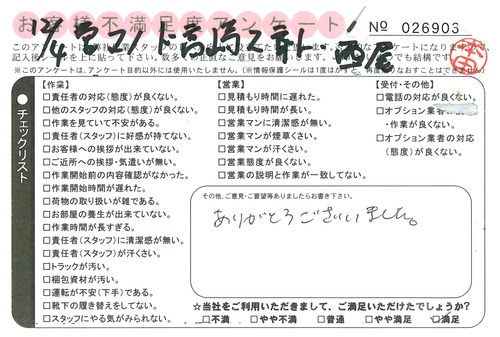 お客様不満足度アンケート
No 026903
※このアンケートは、アンケート目的以外には使用いたしません。(※情報保護シールは1度はがすと、再度貼りなおすことはできません)
チェックリスト
【作業】
□責任者の対応(態度)が良くない。
□他のスタッフの対応(態度)が良くない。
□作業を見ていて不安がある。
□責任者(スタッフ)に好感が持てない。
□お客様への挨拶が出来ていない。
□ご近所への挨拶・気遣いが無い。
□作業開始前の内容確認がなかった。
□作業開始時間が遅れた。
□荷物の取り扱いが雑である。
□お部屋の養生が出来ていない。
□作業時間が長すぎる。
□責任者(スタッフ)に清潔感が無い。
□責任者(スタッフ)が汗くさい。
□トラックが汚い。
□梱包資材が汚い。
□運転が不安(下手)である。
□靴下の履き替えをしてない。
□スタッフにやる気がみられない。
【営業】
□見積もり時間に遅れた。
□見積もり時間が長い。
□営業マンに清潔感が無い。
□営業マンが煙草くさい。
□営業マンが汗くさい。
□営業態度が良くない。
□営業の説明と作業が一致してない。
【受付・その他】
□電話の対応が良くない。
□オプション業者の
・作業が良くない。
□オプション業者の対応
(態度)が良くない。
その他、ご意見・ご要望等ありましたらお書き下さい。
ありがとうございました。
☆当社をご利用いただきまして、ご満足いただけたでしょうか?
□不満 □やや不満 □普通 □やや満足 □満足